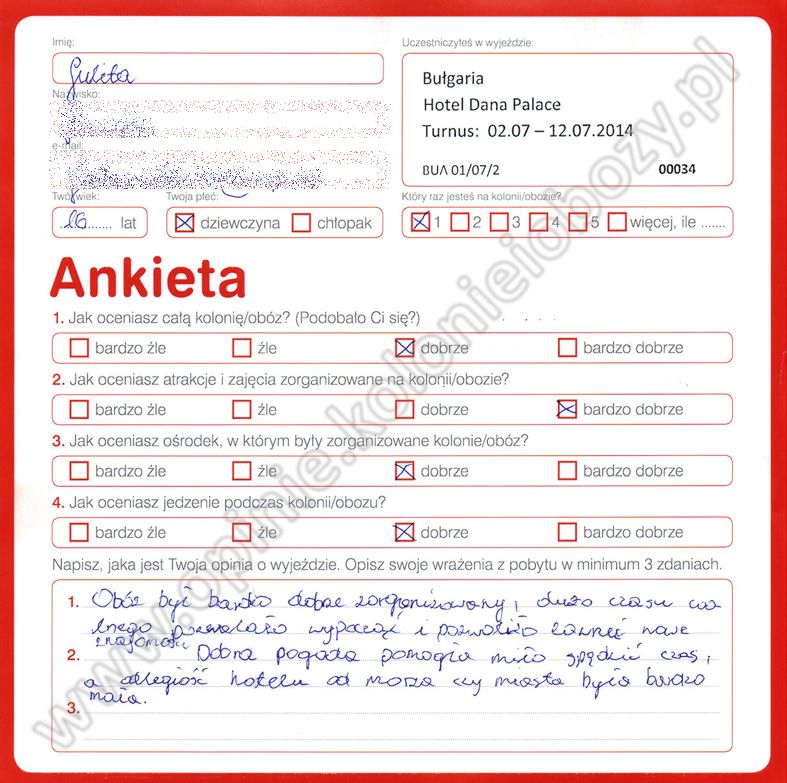 Imię:
Julita
Uczestniczyłeś w wyjeździe:
Bułgaria
Hotel Dana Palace
Turnus: 02.07 – 12.07.2014
BUA 01/07/2 00034
Nazwisko:
e-mail:
Twój wiek: Twoja płeć: Który raz jesteś na kolonii/obozie?
16 lat dziewczyna chłopak 1 2 3 4 5 więcej, ile .......
Ankieta
1. Jak oceniasz całą kolonię/obóz? (Podobało Ci się?)
bardzo źle źle dobrze bardzo dobrze
2. Jak oceniasz atrakcje i zajęcia zorganizowane na kolonii/obozie?
bardzo źle źle dobrze bardzo dobrze
3. Jak oceniasz ośrodek, w którym były zorganizowane kolonie/obóz?
bardzo źle źle dobrze bardzo dobrze
4. Jak oceniasz jedzenie podczas kolonii/obozu?
bardzo źle źle dobrze bardzo dobrze
Napisz, jaka jest Twoja opinia o wyjeździe. Opisz swoje wrażenia z pobytu w minimum 3 zdaniach.
1. Obóz był bardzo dobrze zorganizowany, dużo czasu wo-
lnego pozwalało wypocząć i pozwoliło zawrzeć nowe
znajomości.
2. Dobra pogoda pomogła miło spędzić czas,
a odległość hotelu od morza czy miasta była bardzo
mała.
3.
www.opinie.kolonieiobozy.pl